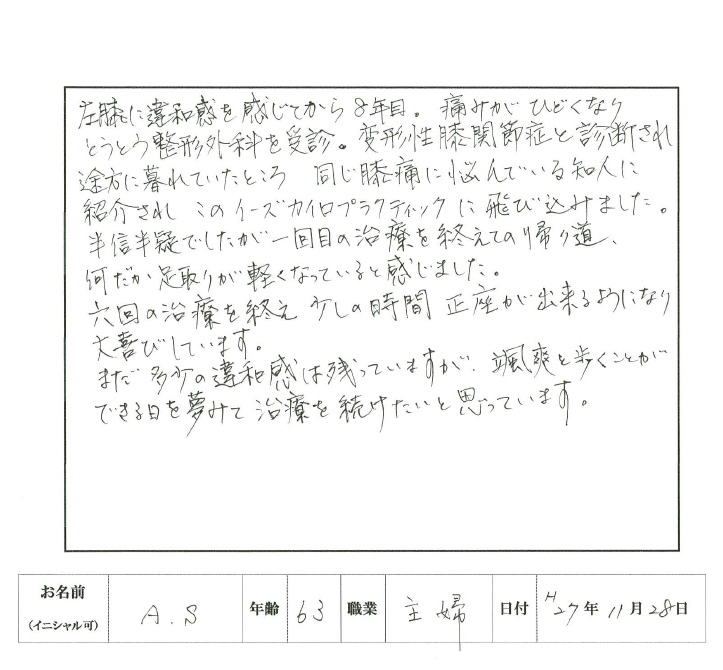 左膝に違和感を感じてから8年目。痛みがひどくなり
とうとう整形外科を受診。変形性膝関節症と診断され
途方に暮れていたところ 同じ膝痛に悩んでいる知人に
紹介され このイーズカイロプラクティックに飛び込みました。
半信半疑でしたが一回目の治療を終えての帰り道、
何だか足取りが軽くなっていると感じました。
六回の治療を終え 少しの時間 正座が出来るようになり
大喜びしています。
まだ多少の違和感は残っていますが、颯爽と歩くことが
できる日を夢みて治療を続けたいと思っています。
お名前 (イニシャル可) A.S 年齢 63 職業 主婦 日付 H27年11月28日